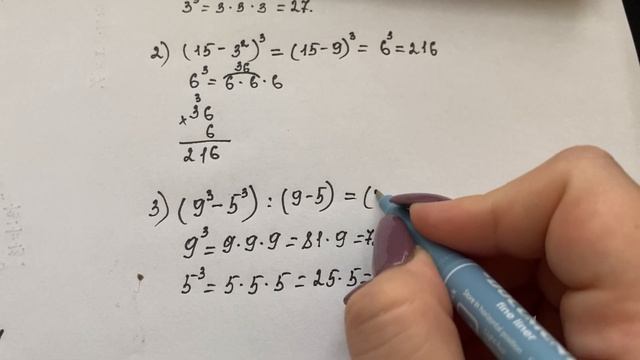 3³ = 3 · 3 · 3 = 27.
2) (15 - 3²)³ = (15 - 9)³ = 6³ = 216
36
6³ = 6 · 6 · 6
3
× 36
6
216
3) (9³ - 5³) : (9 - 5) = (
9³ = 9 · 9 · 9 = 81 · 9 = 7
5³ = 5 · 5 · 5 = 25 · 5 =
fine liner